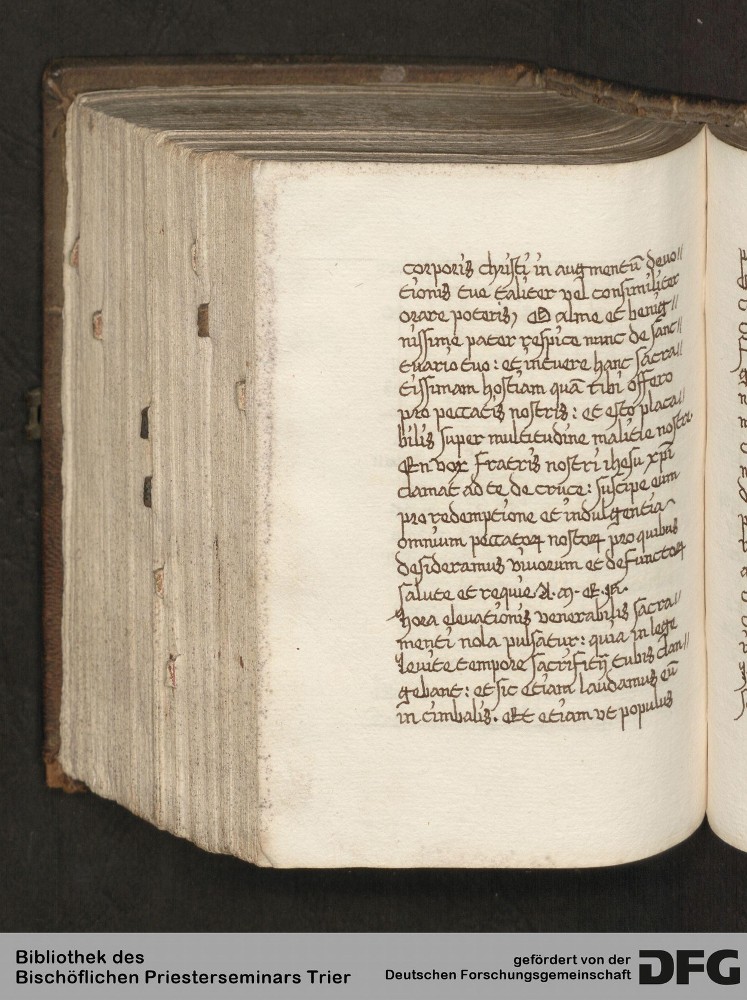 corporis christi in augmentū deuo//
tionis tue taliter vel consimiliter
orare poteris, O alme et benig//
nissime pater respice nunc de sanc//
tuario tuo: et intuere hanc sacra//
tissimam hostiam quā tibi offero
pro peccatis nostris: et esto placa//
bilis super multitudine malitie nostre.
En vox fratris nostri ihesu xp̄i
clamat ad te de cruce: suscipe eum
pro redemptione et indulgentia
omnium peccatoꝝ nostroꝝ pro quibus
desideramus viuorum et defunctoꝝ
salute et requie A. M. E. N.
hora eleuationis venerabilis sacra//
menti nola pulsatur: quia in lege
leuite tempore sacrificij tubis clan//
gebant: et sic etiam laudamus eū
in cimbalis. Et etiam vt populus
Bibliothek des
Bischöflichen Priesterseminars Trier
gefördert von der
Deutschen Forschungsgemeinschaft
DFG